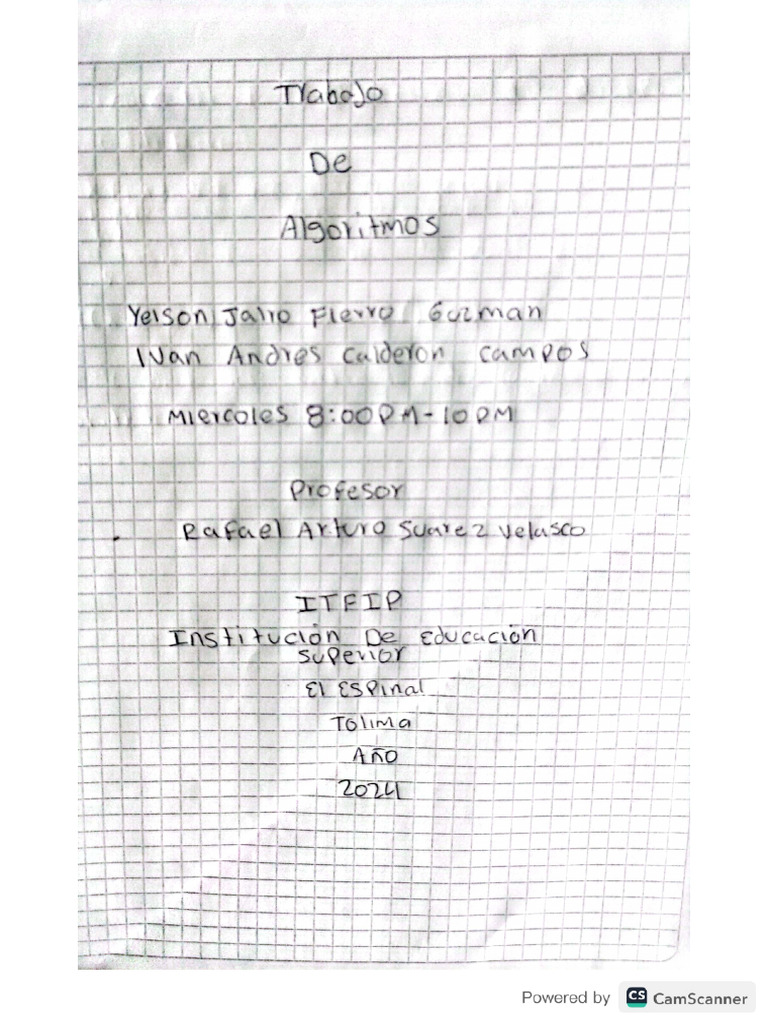 Trabajo
De
Algoritmos
Yeison Jalio Fierro Guzman
Ivan Andres Calderon Campos
Miercoles 8:00PM-10PM
Profesor
Rafael Arturo Suarez Velasco
ITFIP
Institución De Educación
Superior
El Espinal
Tolima
Año
2024
Powered by CS CamScanner